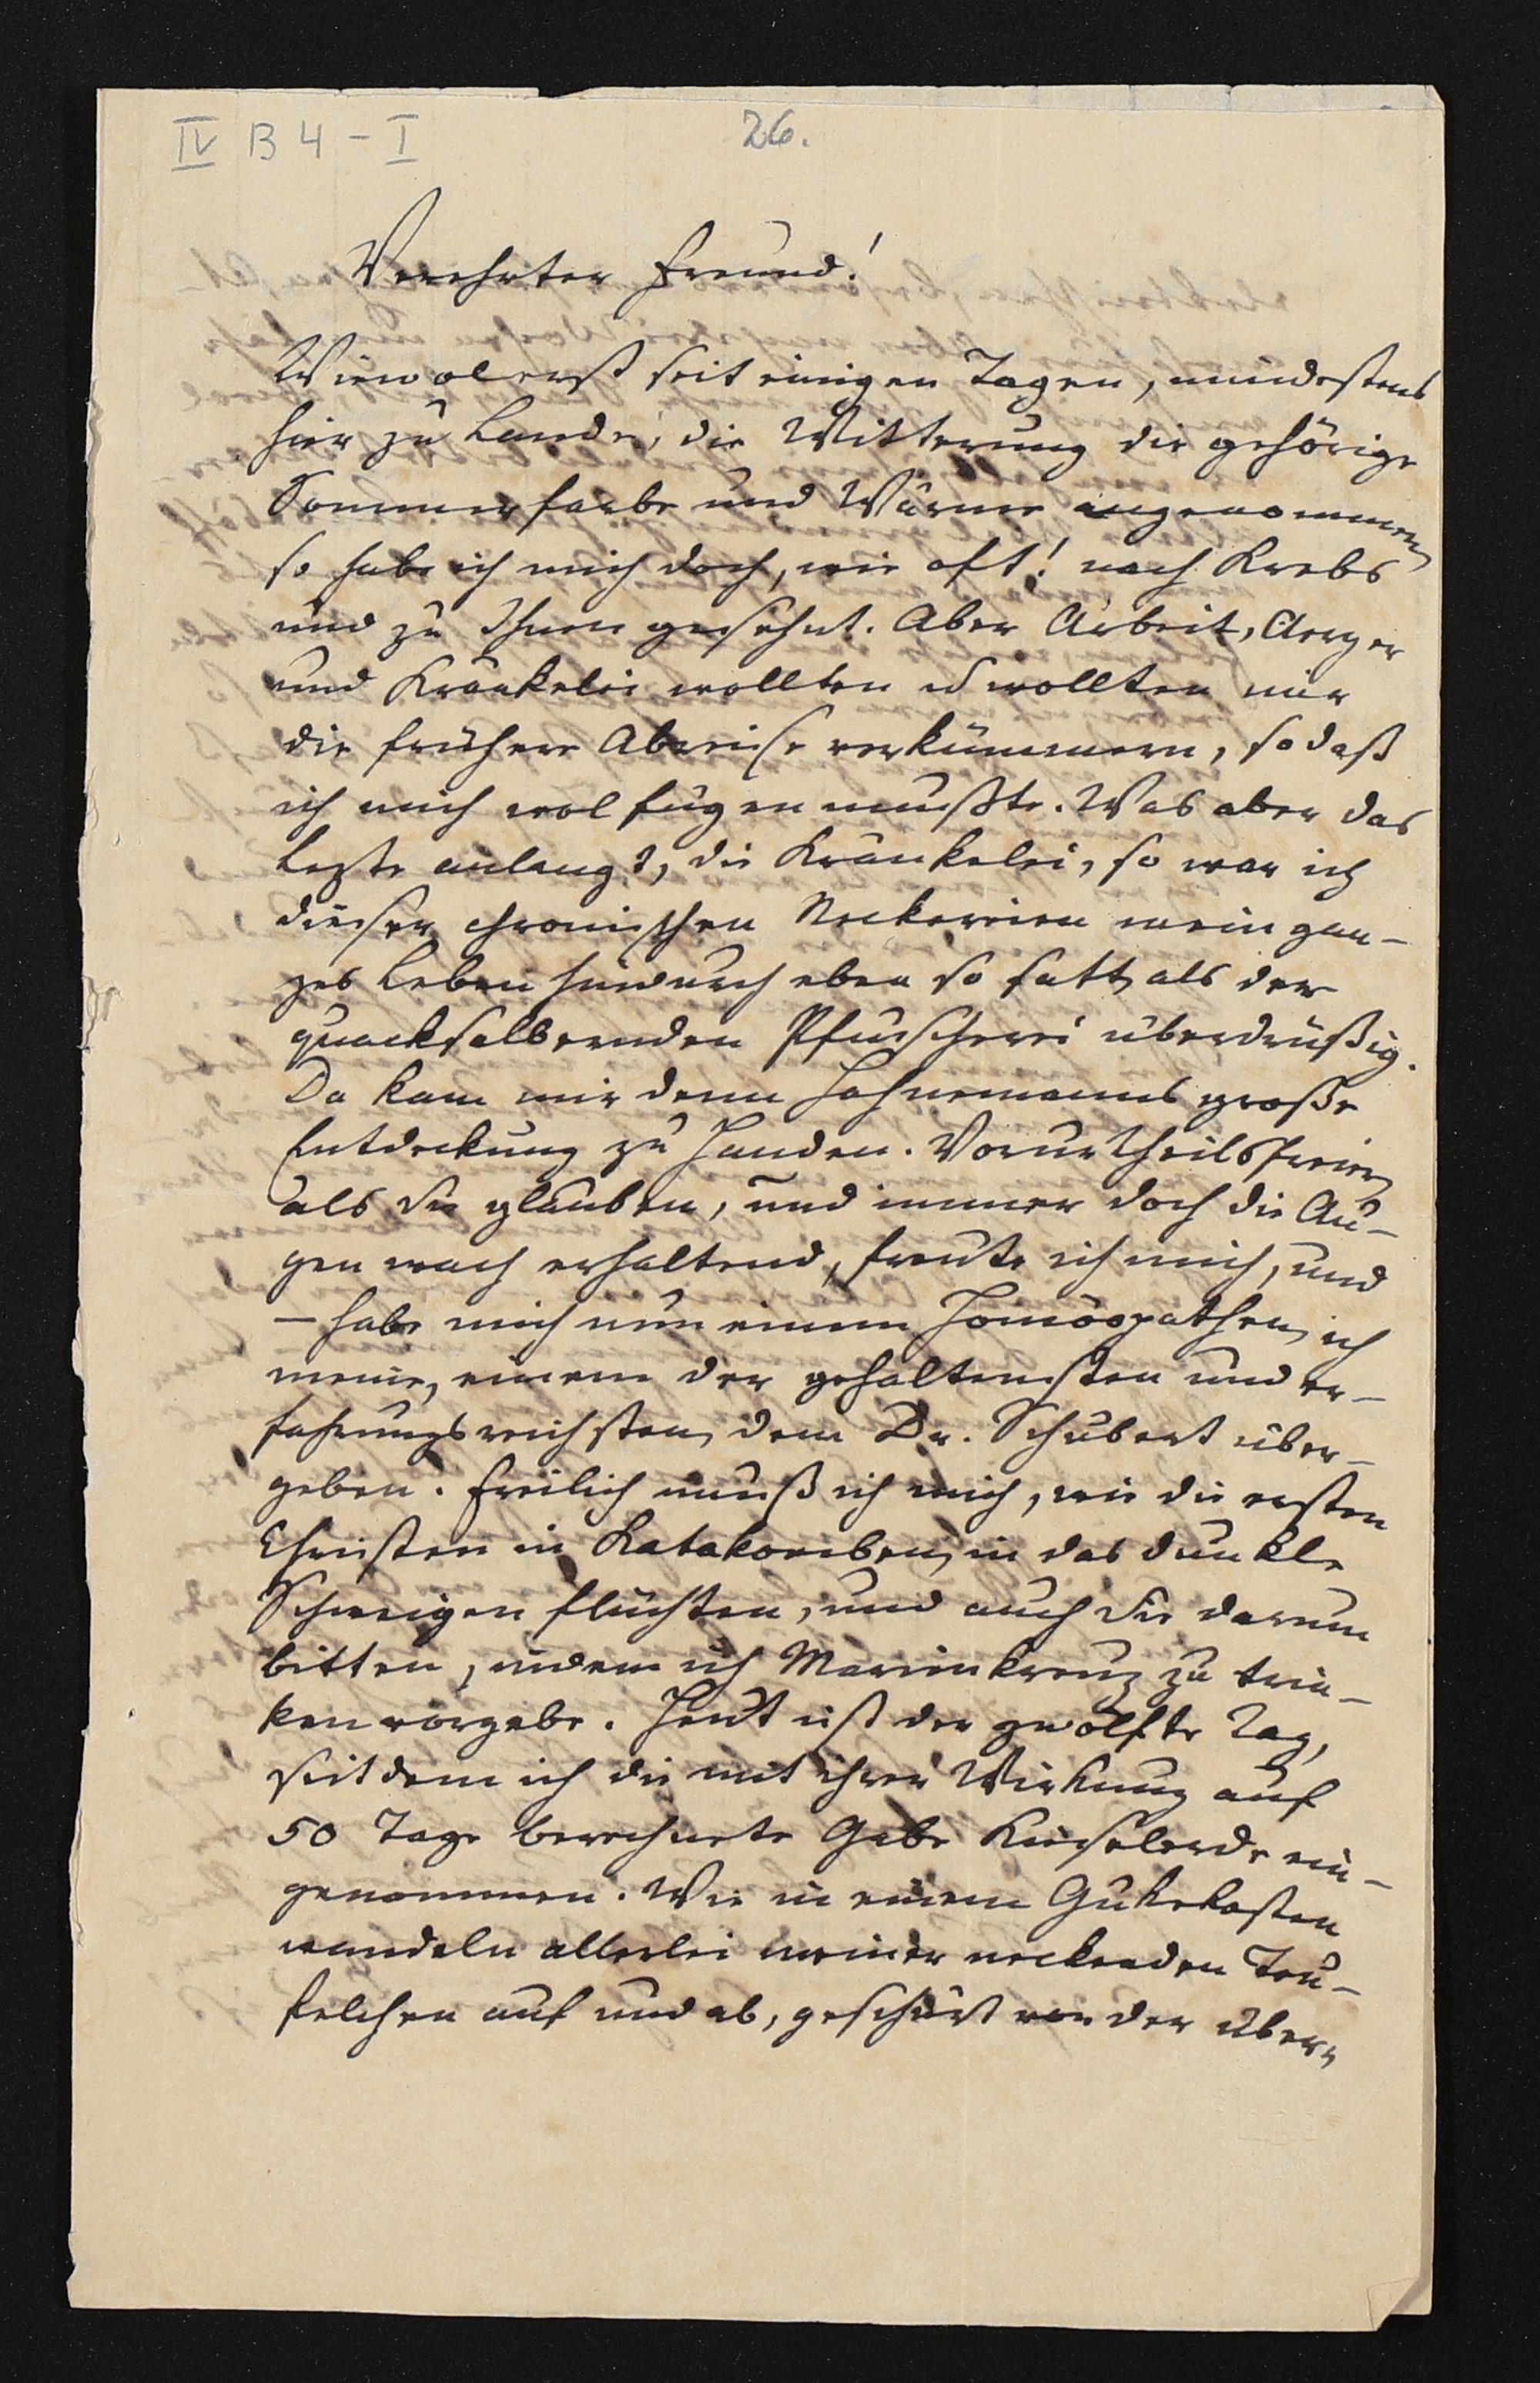 IV B 4 - I
26.
Verehrter Freund!
Wiewol erst seit einigen Tagen, mindestens
hier zu Lande, die Witterung die gehörige
Sommerfarbe und Wärme angenommen,
so habe ich mich doch, wie oft! nach Krebs
und zu Ihnen gesehnt. Aber Arbeit, Aerger
und Kränkelei wollten u wollten mir
die frühere Abreise verkümmern, so daß
ich mich wol fügen mußte. Was aber das
Lezte anlangt, die Kränkelei, so war ich
dieser chronischen Neckereien mein gan-
zes Leben hindurch eben so satt, als der
quacksalbernden Pfuscherei überdrüßig.
Da kam mir denn Hahnemanns große
Entdeckung zu Handen. Vorurtheilsfreier,
als Sie glauben, und immer doch die Au-
gen wach erhaltend, freute ich mich, und
- habe mich nun einem Homöopathen, ich
meine, einem der gehaltensten und er-
fahrungsreichsten, dem Dr. Schubert über-
geben. Freilich muß ich mich, wie die ersten
Christen in Katakomben, in das dunkle
Schweigen flüchten, und auch Sie darum
bitten, indem ich Marienkreuz zu trin-
ken vorgebe. Heut ist der zwölfte Tag,
seitdem ich die mit ihrer Wirkung auf
50 Tage berechnete Gabe Kieselerde ein-
genommen. Wie in einem Gukekasten
wandeln allerlei meiner neckenden Teu-
felchen auf und ab, geschürt von der über-